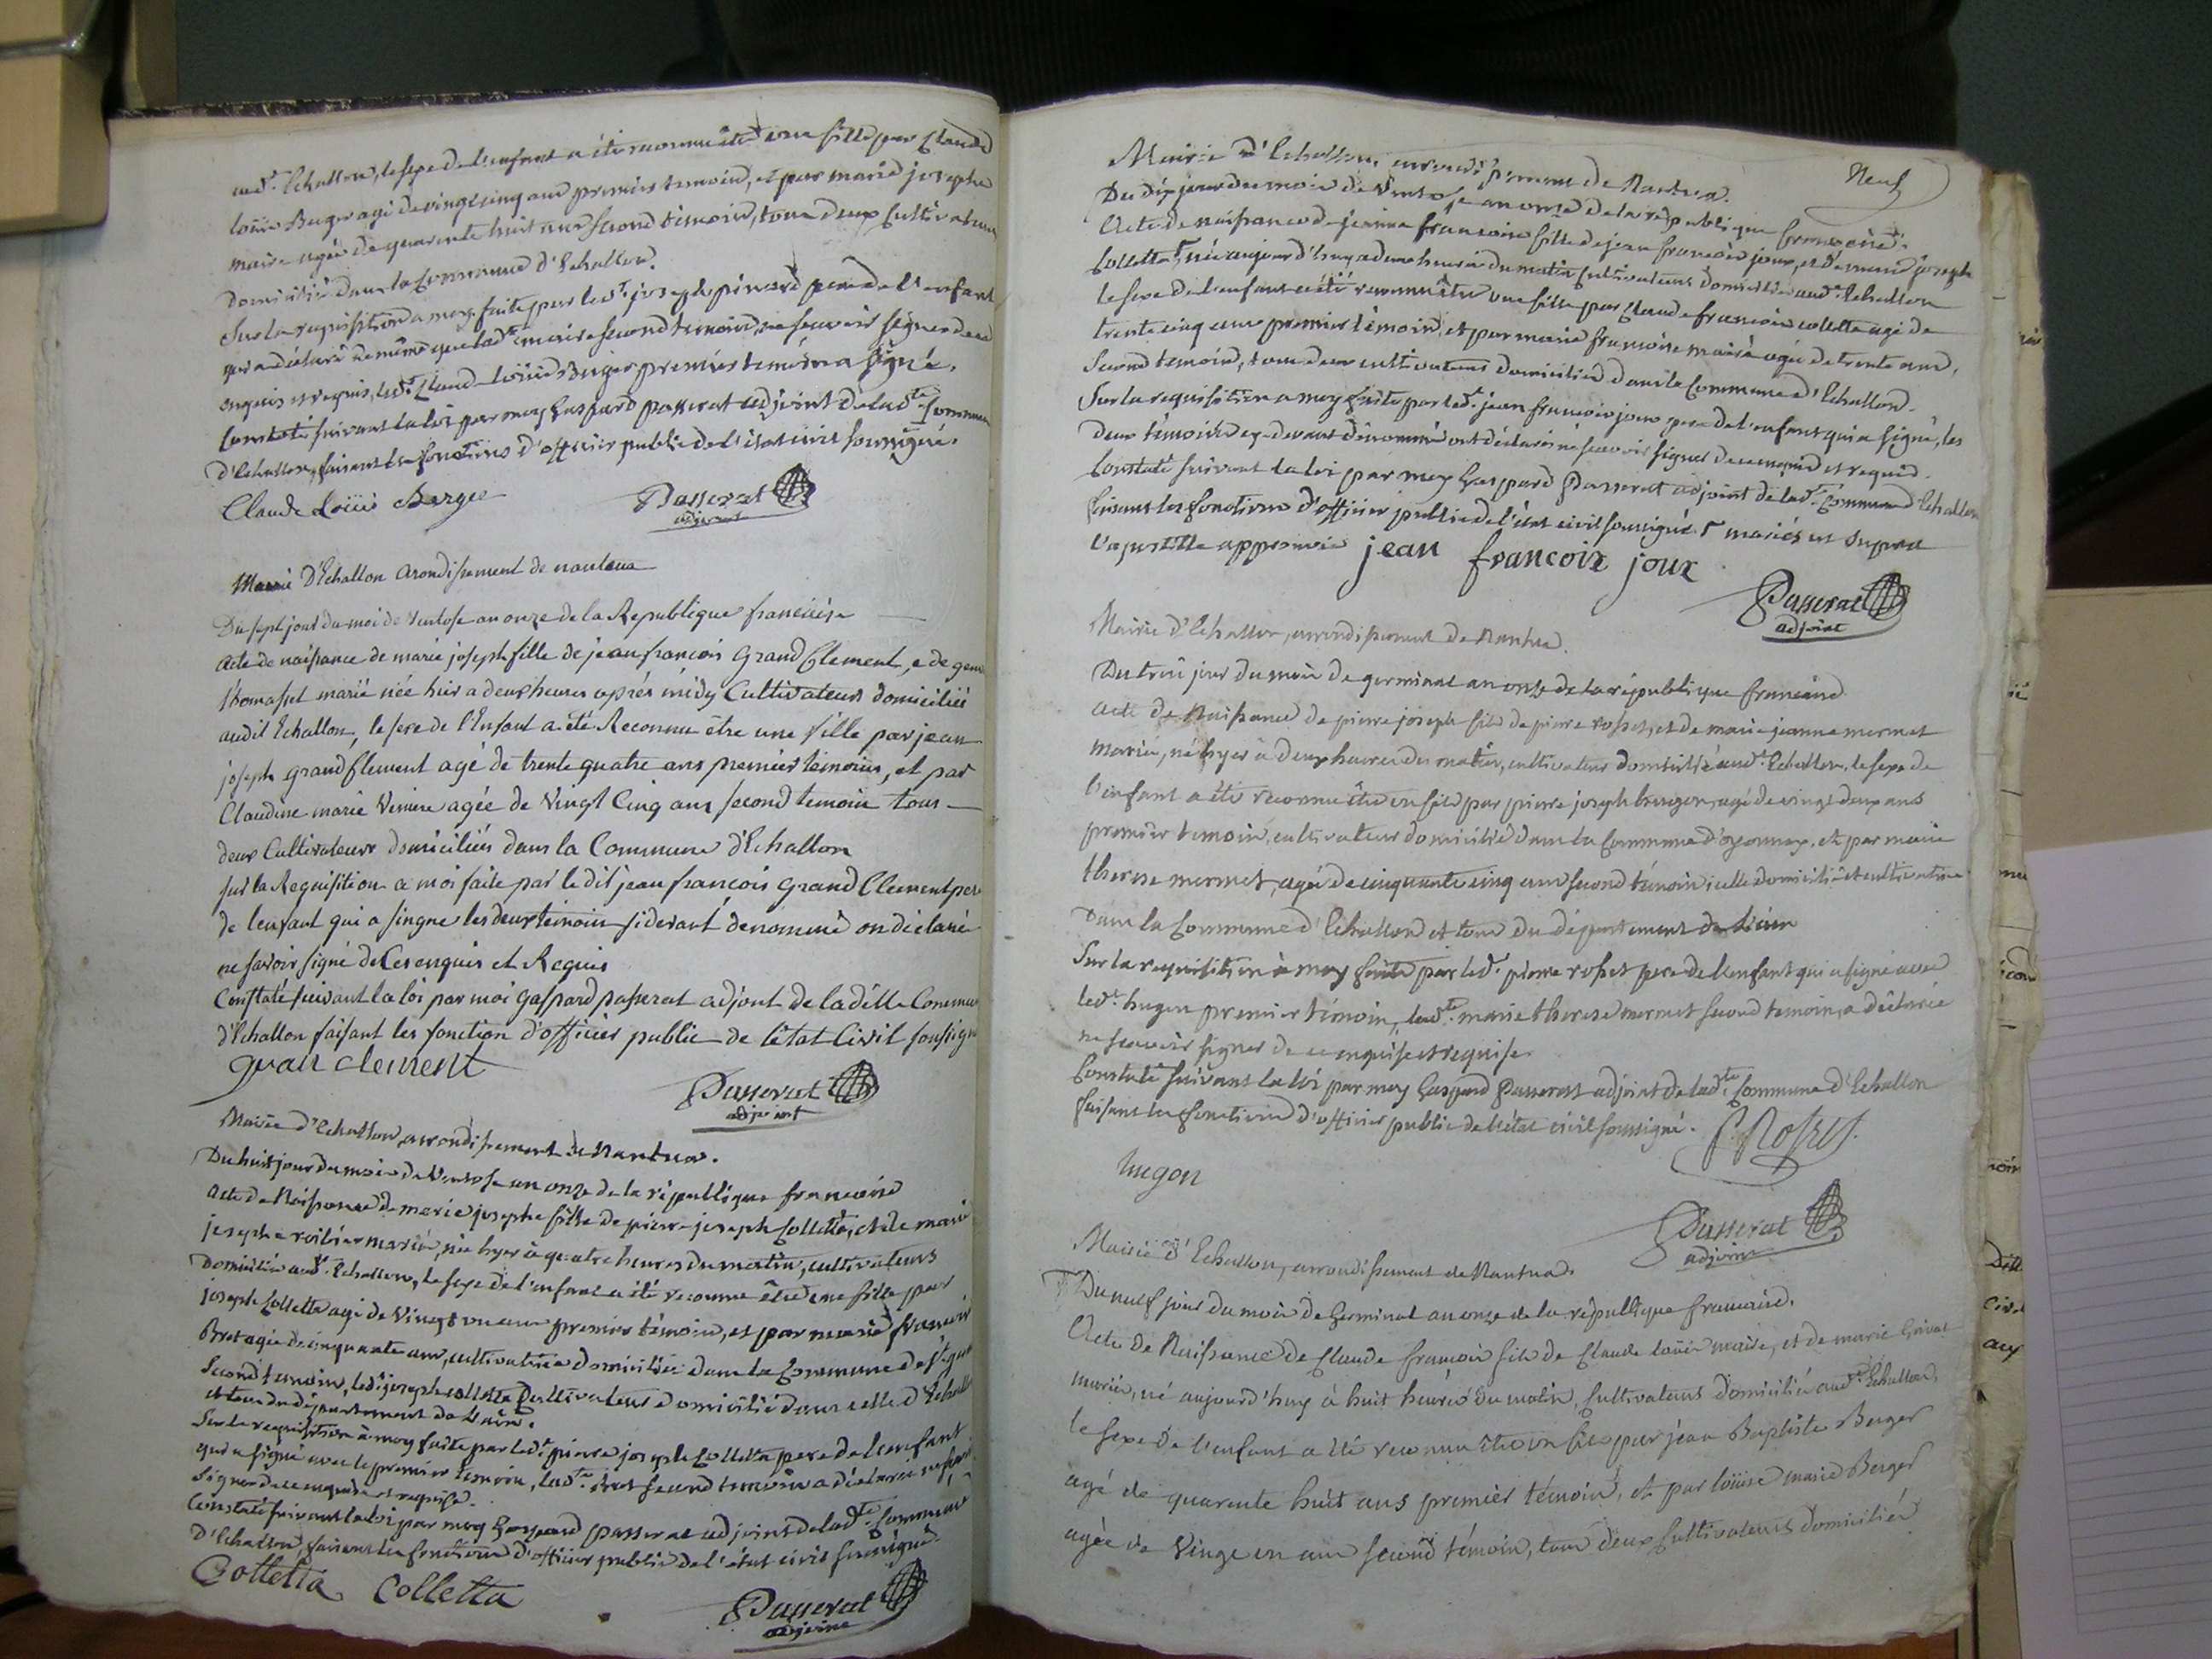 aud.t Echallon, le sexe de l'enfant a été reconnu être une fille par Claude
louis Berger agé de vingt cinq ans premier temoin, et par marie josephe
maire agée de quarente huit ans second témoin, tous deux Cultivateurs
domiciliés dans la Commune d'Echallon.
Sur la requisition a moy faite par led.t joseph pinard pere de l'enfant
qui a déclaré de même que lad.te maire second temoin ne scavoir signer de ce
enquis et requis, led.t Claude Louis Berger premier temoin a signé.
Constaté suivant la loi par moy Gaspard passerat adjoint de lad.te Commune
d'Echallon, faisant les fonctions d'officier public de l'état civil soussigné.
Claude Loüis Berger
Passerat
adjoint
Mairie D'Echallon arondissement de nantua
Du sept jour du moi de Ventose an onze de la Republique francaise
acte de naissance de marie joseph fille de jean francois Grand Clement, e de gene
thomasset marié née hier a deux heures aprés midy Cultivateurs domiciliés
audit Echallon, le sexe de l'Enfant a été Reconnu être une fille par jean
joseph grand Clement agé de trente quatre ans premier temoins, et par
Claudine marie Veniere agée de Vingt Cinq ans second temoin tous
deux Cultivateurs domiciliés dans la Commune d'Echallon
sur la Requisition a moi faite par le dit jean francois Grand Clement pere
de l'enfant qui a singne les deux temoin sidevant denommé on déclaré
ne savoir signé de Ces enquis et Requis
Constaté suivant la loi par moi gaspard passerat adjont de la ditte Commune
d'Echallon faisant les fonction d'officier public de l'état Civil soussigne
gran clement
Passerat
adjoint
Mairie d'Echallon, arrondissement de Nantua.
Du huit jour du mois de Ventose an onze de la république francoise
acte de Naissance de marie josephe fille de pierre joseph Colletta, et de marie
josephe roibier mariés, née hyer à quatre heures du matin, cultivateurs
domiciliés aud.t Echallon, le sexe de l'enfant a été reconnu être une fille par
joseph Colletta agé de Vingt un ans premier témoin, et par marie francoise
Bret agée de cinquante ans, cultivatrice domiciliée dans la Commune de
Second temoin, led.t joseph colletta Cultivateur domicilié dans celle d'Echallon
et tous du département de l'ain.
Sur la requisition à moy faite par led.t pierre joseph Colletta pere de l'enfant
qui a signé avec le premier temoin, lad.te Bret second temoin a déclaré ne scavoir
signer de ce enquise et requise.
Constaté suivant la loi par moy Gaspard passerat adjoint de lad.te Commune
D'Echallon, faisant les fonctions d'officier public de l'état civil soussigné.
Colletta Colletta
Passerat
adjoint
Neuf
Mairie d'Echallon, arrondissement de Nantua.
Du dix jour du mois de Ventose an onze de la république francoise.
Acte de naissance de jeanne francoise fille de jean francois joux, et de marie joseph
Colletta, née aujourd'huy a deux heures du matin Cultivateurs domiciliés aud.t Echallon
le sexe de l'enfant a été reconnu être une fille par Claude francois colletta agé de
trente cinq ans premier témoin, et par marie francoise maire agée de trente ans,
Second temoin, tous deux cultivateurs domiciliés dans la Commune d'Echallon.
Sur la requisition a moy faite par led.t jean francois joux pere de l'enfant qui a signé, les
deux témoins cy-devant dénommés ont déclaré ne scavoir signer de ce enquis et requis.
Constaté suivant la loi par moy Gaspard Passerat adjoint de lad.te Commune d'Echallon
faisant les fonctions d'officier public de l'état civil soussigné. mariés ut supra
l'apostille approuvée jean francoix joux
Passerat
adjoint
Mairie d'Echallon, arrondissement de Nantua.
Du trois jour du mois de germinal an onze de la république francaise
acte de Naissance de pierre joseph fils de pierre rosset, et de marie jeanne mermet
mariés, né hyer à deux heures du matin, cultivateurs domiciliés aud.t Echallon, le sexe de
l'enfant a été reconnu être un fils par pierre joseph hugon, agé de vingt deux ans
premier temoin, cultivateur domicilié dans la Commune d'oyonnax, et par marie
therese mermet, agée de cinquante cinq ans second témoin, icelle domiciliée et cultivatrice
dans la Commune d'Echallon et tous du département de l'ain
Sur la requisition à moy faite par led.t pierre rosset pere de l'enfant qui a signé avec
led.t hugon premier témoin, lad.te marie therese mermet second temoin, a déclarée
ne scavoir signer de ce enquise et requise.
Constaté suivant la loi par moy Gaspard Passerat adjoint de lad.te Commune d'Echallon
faisant les fonctions d'officier public de l'état civil soussigné. P. Rosset.
hugon
Passerat
adjoint
Mairie d'Echallon, arrondissement de Nantua.
Du neuf jour du mois de Germinal an onze de la république francaise.
Acte de Naissance de Claude francois fils de Claude louis maire, et de marie
mariés, né aujourd'huy à huit heures du matin, Cultivateurs domiciliés aud.t Echallon,
le sexe de l'enfant a été reconnu être un fils par jean Baptiste Berger
agé de quarente huit ans premier témoin, et par loüise marie Berger
agée de Vingt un ans second témoin, tous deux Cultivateurs domiciliés